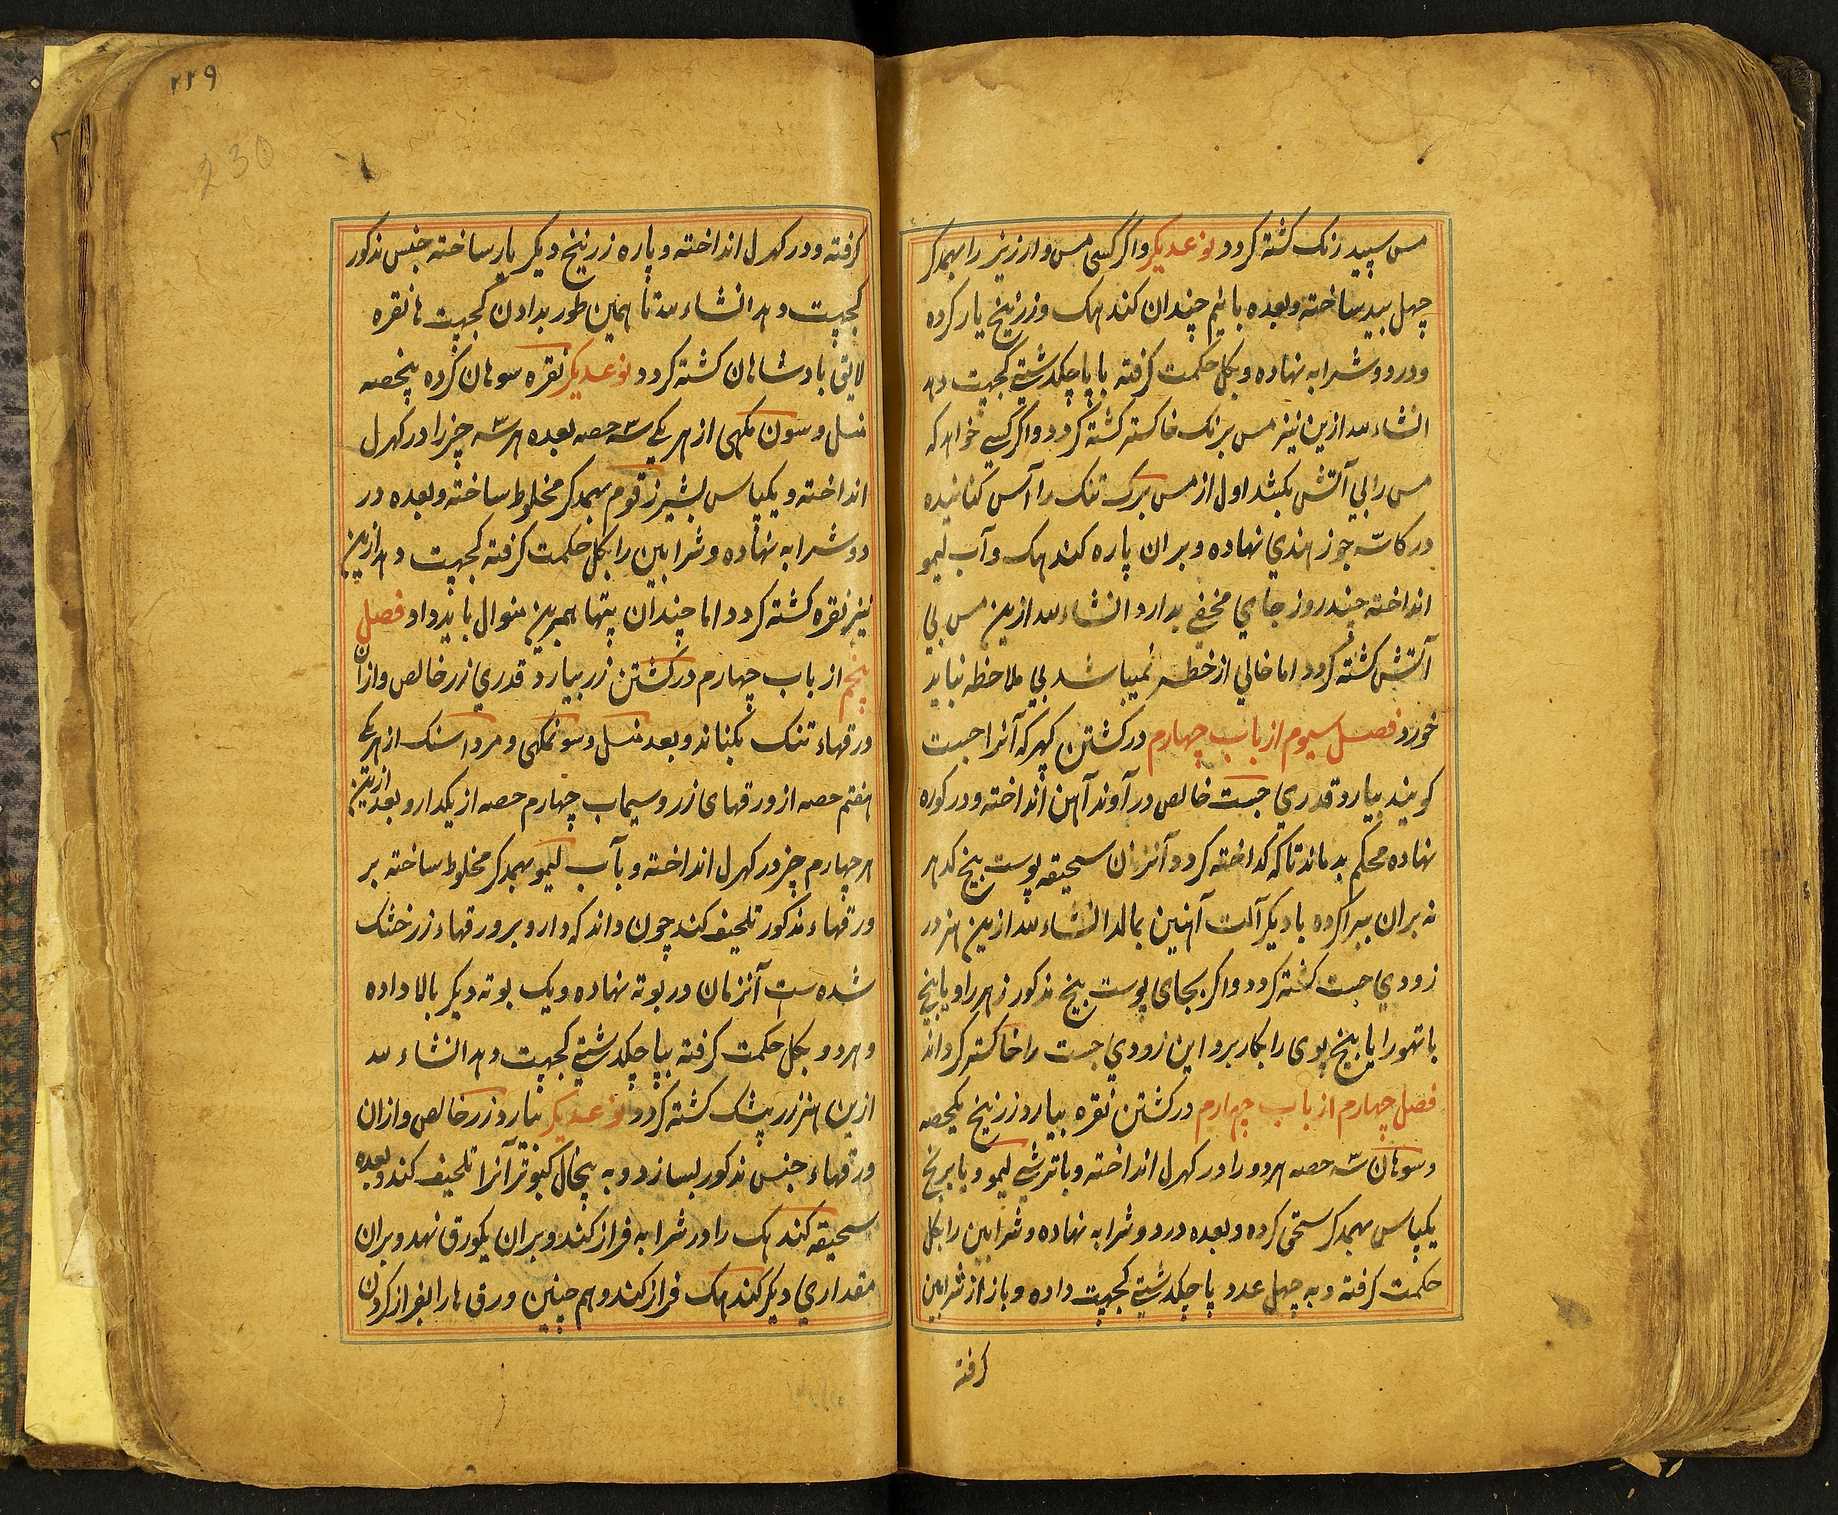 مس سپید رنک کشته کردد نوعدیکر و اکر کسی مس و ارزیز را بهمدکر
چهل سید ساخته و بعده با نیم چندان کندهک و زرنیخ یار کرده
و در دو شرابه نهاده و بکل حکمت کرفته با پاچکدشتی کجپت دهد
انشاء الله ازین نیز مس برنک خاکستر کشته کردد و اکر کسی خواهد که
مس را بی آتش بکشد اول از مس برک تنک را آس کنانیده
در کاسه جوز هندی نهاده و بران پاره کندهک و آب لیمو
انداخته چند روز جای مخفی بدارد انشاء الله ازین مس بی
آتش کشته کردد اما خالی از خطر نمیباشد بی ملاحظه نباید
خورد فصل سیوم از باب چهارم در کشتن کهرکه آنرا جست
کویند بیارد قدری جست خالص در آوند آهن انداخته و در کوره
نهاده محکم بدماند تا که کداخته کردد آنزمان سحیقه پوست بیخ کدهر
نه بران بپراکرده با دیکر آلت آهنین بمالد انشاء الله ازین هنر در
زودی جست کشته کردد و اکر بجای پوست بیخ مذکور زهر را و یا بیخ
باتهو را یا بیخ پوی را بکار برد این زودی جست را خاکستر کرداند
فصل چهارم از باب چهارم در کشتن نقره بیارد زرنیخ یکحصه
و سوهان سه حصه هردو را در کهرل انداخته و با ترشی لیمو و یا برنج
یکپاس بهمدکر سحق کرده و بعده در دو شرابه نهاده و شرابین را بکل
حکمت کرفته و به چهل عدد پاچکدشتی کجپت داده و باز از شرابین
کرفته
۲۲۹
230
کرفته و در کهرل انداخته و پاره زرنیخ دیکر یار ساخته جنس مذکور
کجپت دهد انشاء الله تا همین طور بدادن کجپت ها نقره
لائق بادشاهان کشته کردد نوعدیکر نقره سوهان کرده پنجحصه
منسل و سون مکهی از هر یکی سه حصه بعده هر سه چیز را در کهرل
انداخته و یکپاس بشیر زقوم بهمدکر مخلوط ساخته و بعده در
دو شرابه نهاده و شرابین را بکل حکمت کرفته کجپت دهد ازین
نیز نقره کشته کردد اما چندان پتها همبرین منوال باید داد فصل
پنجم از باب چهارم در کشتن زر بیارد قدری زر خالص و ازان
ورقهاء تنک بکناند و بعد منسل و سونمکهی و مردارسنک از هر یکی
هفتم حصه از ورقهای زر و سیماب چهارم حصه از یکدارو بعد ازین
هر چهارم چیز در کهرل انداخته و بآب لیمو بهمدکر مخلوط ساخته بر
ورقهاء مذکور تلحیف کند چون داند که دارو بر ورقهاء زر خشک
شده ست آنزمان در بوته نهاده و یک بوته دیکر بالا داده
و هردو بکل حکمت کرفته بپاچکدشتی کجپت دهد انشاء الله
ازین هنر زر بیشک کشته کردد نوعدیکر بیارد زر خالص و ازان
ورقهاء جنس مذکور بسازد و به پیخال کبوتر آنرا تلحیف کند و بعده
سحیقه کندهک را در شرابه فراز کند و بران یکورق نهد و بران
مقداری دیکر کندهک فراز کند و هم چنین ورق ها را بفراز کردن